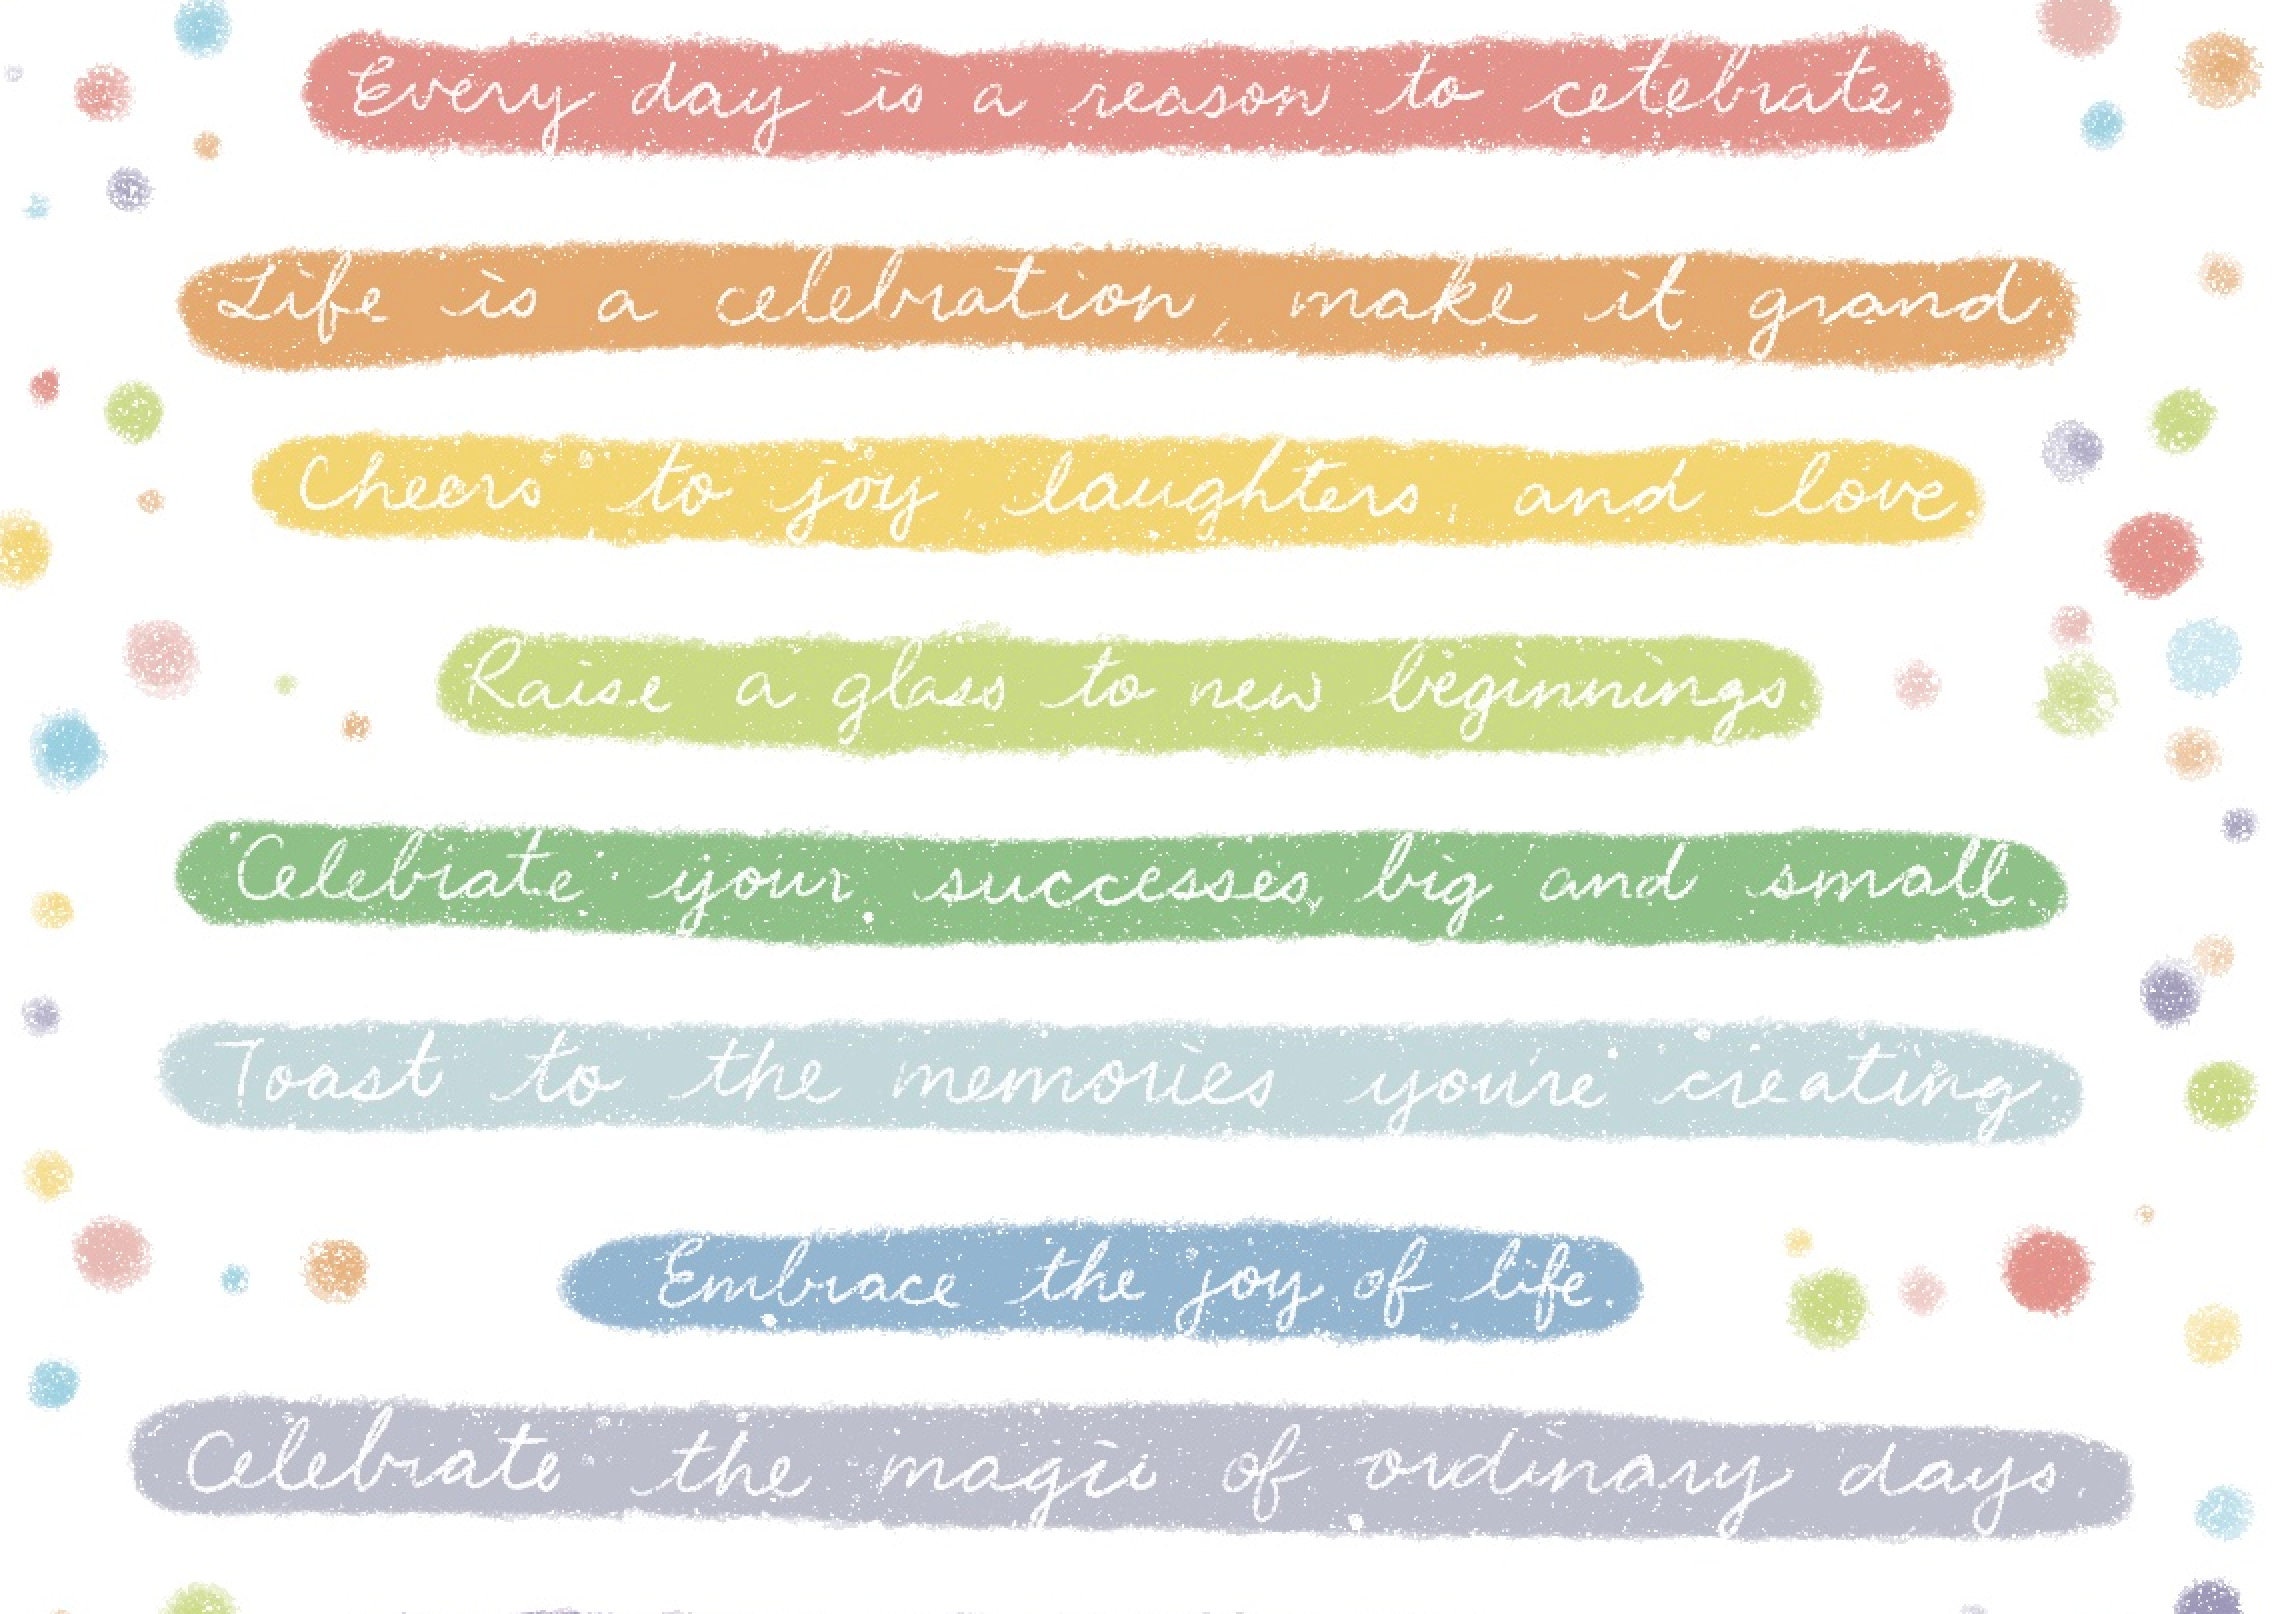 Every day is a reason to cetebrate.
Life is a celebration, make it grand.
Cheers to joy, laughters, and love.
Raise a glass to new beginnings.
Celebrate your successes, big and small.
Toast to the memories you're creating.
Embrace the joy of life.
Celebrate the magic of ordinary days.